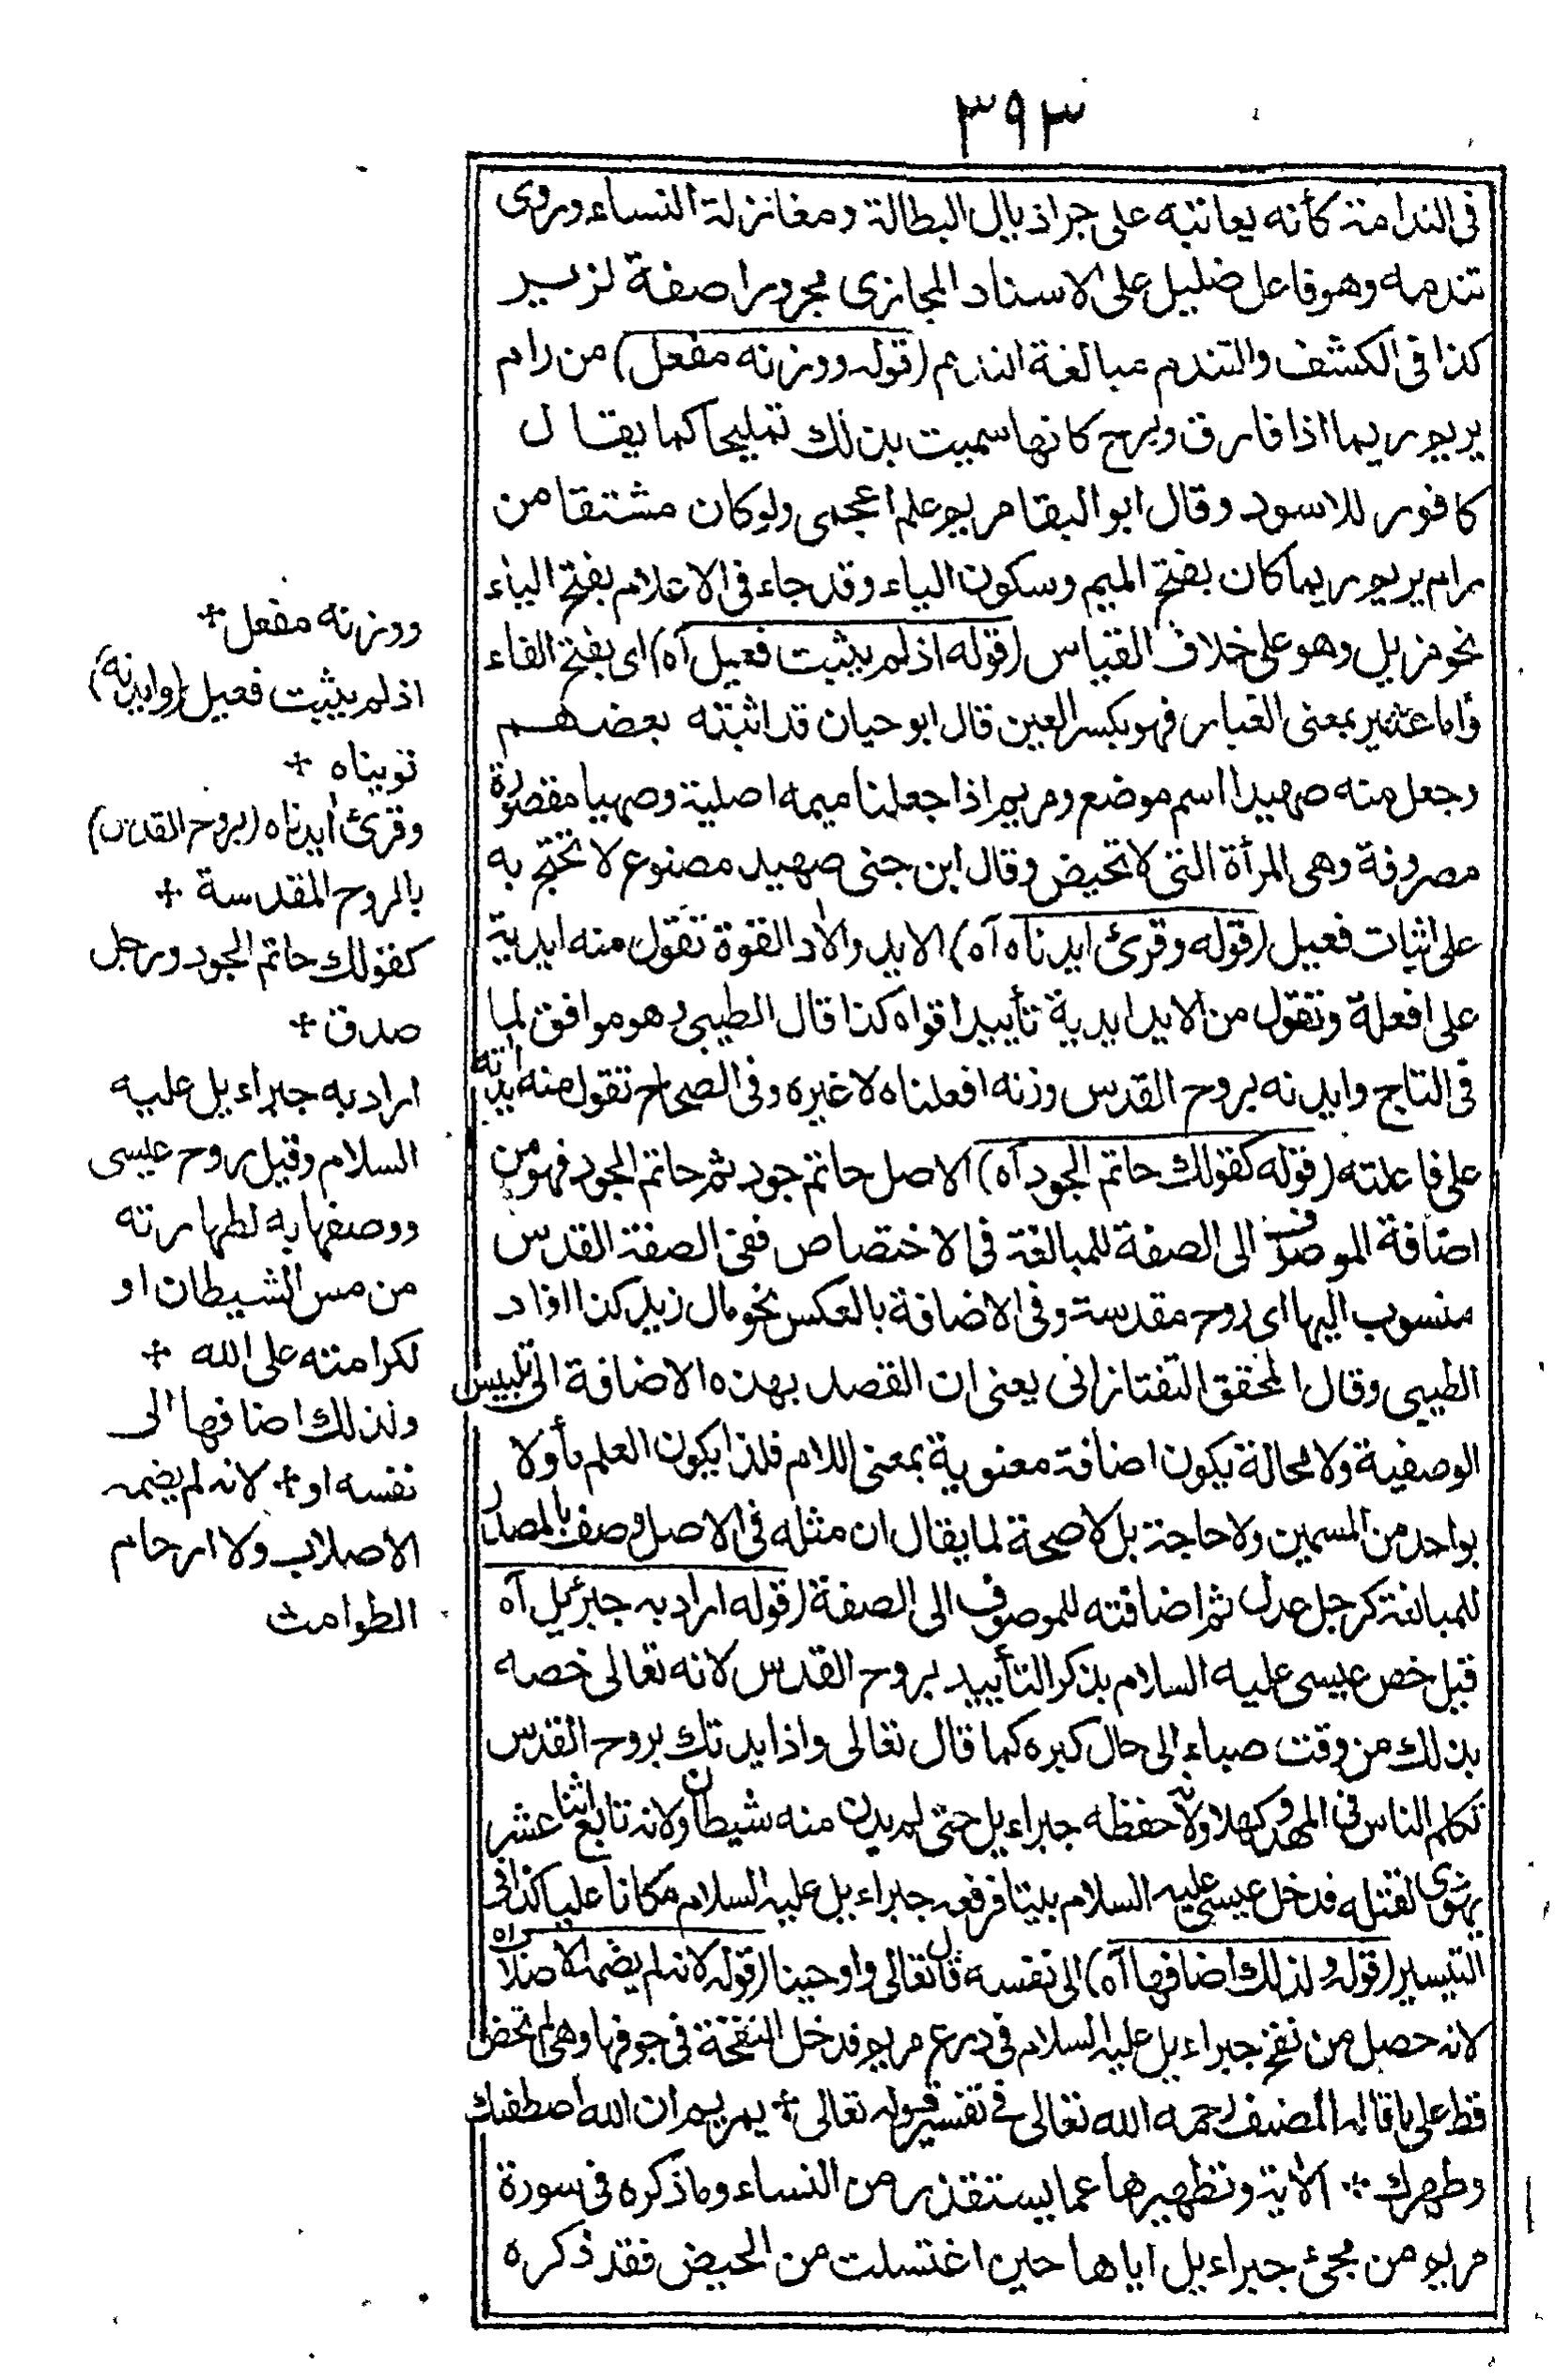 ٣٩٣
في الندامة كأنه يعاتبه على جراذيال البطالة ومغازلة النساء وروى
تندمه وهو فاعل ضليل على الاسناد المجازى مجرورا صفة لزير
كذا في الكشف والتندم مبالغة الندم (قوله ووزنه مفعل) من رام
يريم ريما اذا فارق وبرح كانها سميت بذلك تمليحا كما يقال
كافور للاسود وقال ابو البقا مريم علم اعجمى ولو كان مشتقا من
رام يريم ريما كان بفتح الميم وسكون الياء وقد جاء في الاعلام بفتح الياء
نحو مزيل وهو على خلاف القياس (قوله اذ لم يثبت فعيل آه) اى بفتح الفاء
واما عثير بمعنى الغبار فهو بكسر العين قال ابو حيان قد اثبته بعضهم
وجعل منه صهيدا اسم موضع ومريم اذا جعلنا ميمه اصلية وصهيا مقصورة
مصروفة وهى المرأة التى لا تحيض وقال ابن جنى صهيد مصنوع لا تحتج به
على اثبات فعيل (قوله وقرئ ايدناه آه) الايد والاد القوة تقول منه ايدية
على افعلة وتقول من الايد ايدية تأييدا قواه كذا قال الطيبى وهو موافق لما
في التاج وايدنه بروح القدس وزنه افعلناه لا غيره وفي الصحاح تقول منه ايدته
على فاعلته (قوله كقولك حاتم الجود آه) الاصل حاتم جود ثم حاتم الجود فهو من
اضافة الموصوف الى الصفة للمبالغة في الاختصاص ففى الصفة القدس
منسوب اليها اى روح مقدسة وفي الاضافة بالعكس نحو مال زيد كذا افاد
الطيبى وقال المحقق التفتازانى يعنى ان القصد بهذه الاضافة الى تلبيس
الوصفية ولا محالة يكون اضافة معنوية بمعنى اللام فلذا يكون العلم مأولا
بواحد من المسمين ولا حاجة بل لا صحة لما يقال ان مثله في الاصل وصف بالمصدر
للمبالغة كرجل عدل ثم اضافته للموصوف الى الصفة (قوله اراد به جبرئيل آه
قيل خص عيسى عليه السلام بذكر التأييد بروح القدس لانه تعالى خصه
بذلك من وقت صباه الى حال كبره كما قال تعالى واذ ايدتك بروح القدس
تكلم الناس في المهد وكهلا ولانه حفظه جبراءيل حتى لم يدن منه شيطان ولانه تابع اثنا عشر
يهودى لقتله فدخل عيسى عليه السلام بيتا فرفعه جبراءيل عليه السلام مكانا عليا كذا في
التيسير (قوله ولذلك اضافها آه) الى نفسه قال تعالى واوحينا (قوله لانه لم يضمه الاصلاب آه
لانه حصل من نفخ جبراءيل عليه السلام في درع مريم فدخل النفخة في جوفها وهى لم تحض
قط على ما قاله المصنف رحمه الله تعالى في تفسير قوله تعالى + يمريم ان الله اصطفىك
وطهرك + الاية وتطهيرها عما يستقذر من النساء وما ذكره في سورة
مريم من مجئ جبراءيل اياها حين اغتسلت من الحيض فقد ذكره
ووزنه مفعل +
اذ لم يثبت فعيل (وايدنه)
قويناه +
وقرئ ايدناه (بروح القدس)
بالروح المقدسة +
كقولك حاتم الجود ورجل
صدق +
اراد به جبراءيل عليه
السلام وقيل روح عيسى
ووصفها به لطهارته
من مس الشيطان او
لكرامته على الله +
ولذلك اضافها الى
نفسه او + لانه لم يضمه
الاصلاب ولا ارحام
الطوامث